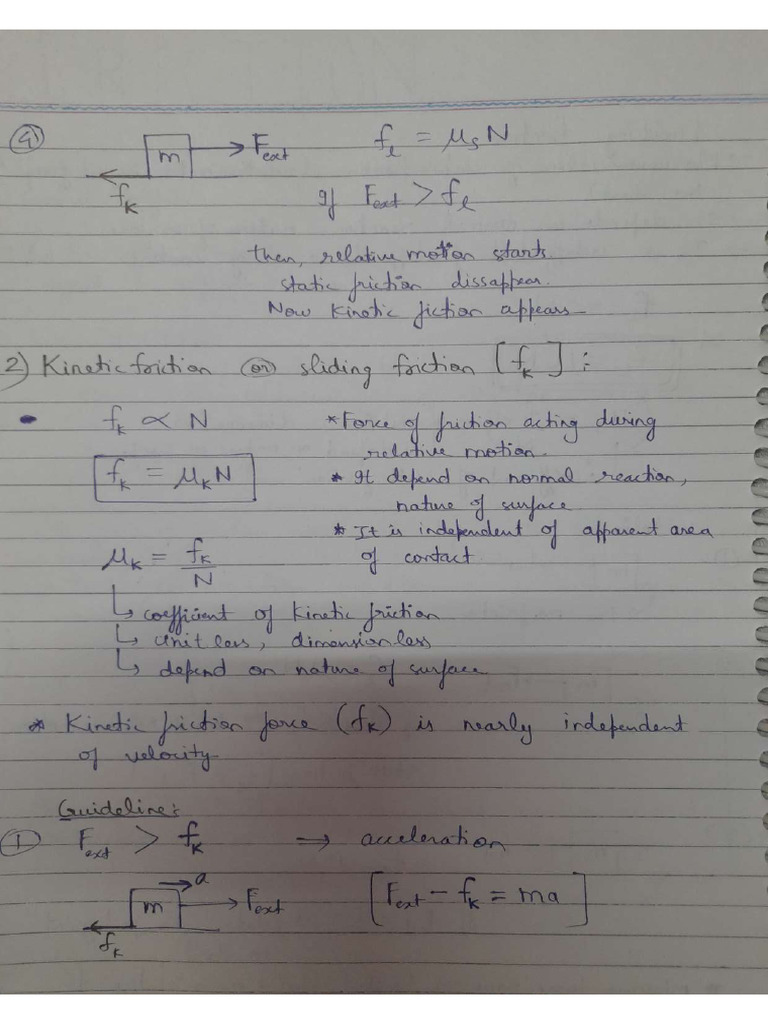 ④
m → Fext   fₗ = μₛN
fK   If Fext > fₗ
then, relative motion starts
static friction dissappear.
Now Kinetic fiction appears
2) Kinetic friction (or) sliding friction [fK] :
• fK ∝ N   * Force of friction acting during
relative motion.
fK = μKN   * It depend on normal reaction,
nature of surface
* It is independent of apparent area
μK = fK/N   of contact
↳ coefficient of Kinetic friction
↳ unit less, dimensionless
↳ depend on nature of surface
* Kinetic friction force (fK) is nearly independent
of velocity
Guideline:
① Fext > fK → acceleration
→ a
m → Fext   [Fext - fK = ma]
fK